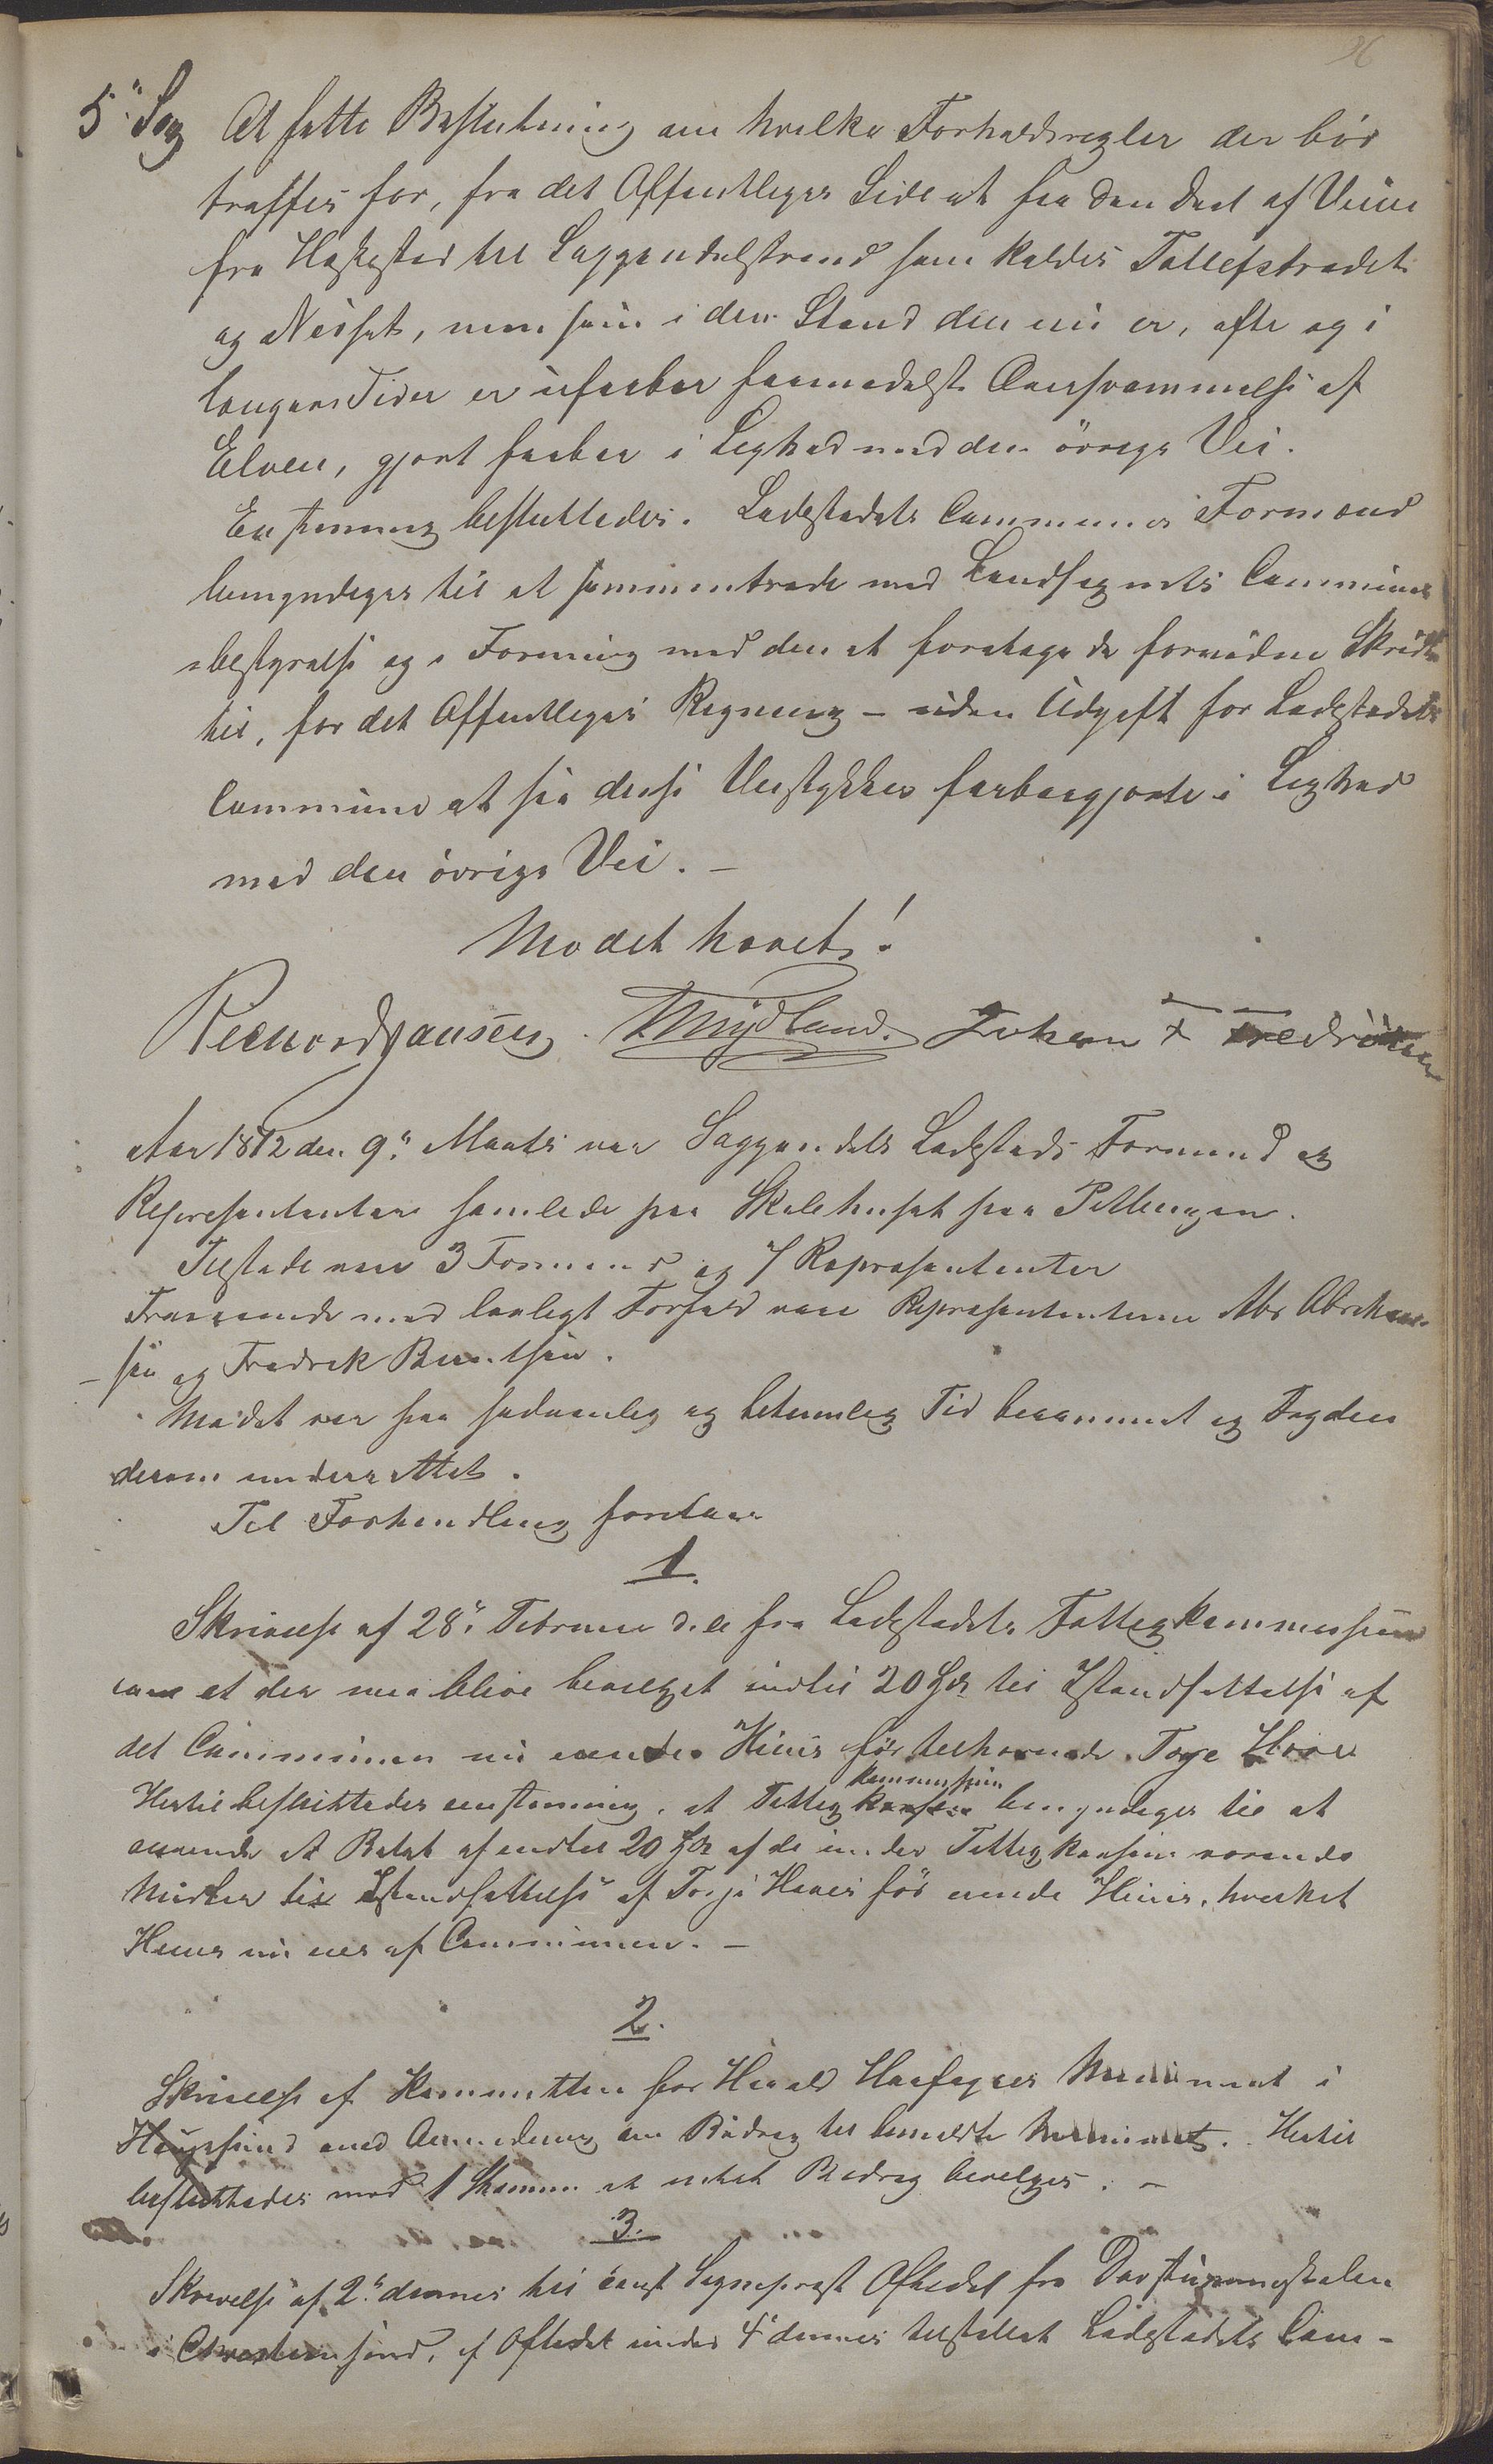 96
5" Sag At fatte Beslutning om hvilke Forholdsregler der bör
træffes for, fra det Offentliges Side at faa den Deel af Veien
fra Haskestad til Soggendalstrand som kaldes Tollefstrædet
og Næset, men som i den Stand den nu er, ofte og i
længere Tider er ufarbar formedelst Oversvömmelse af
Elven, gjort farbar i Lighed med den övrige Vei.
Enstemmig besluttedes. Ladestedets Communes Formænd
bemyndiges til at sammentræde med Landsognets Commune
=bestyrelse og i Forening med den at foretage de fornødne Skridt
til, for det Offentliges Regning – uden Udgift for Ladestedets
Commune at faa disse Veistykker farbargjorte i Lighed
med den övrige Vei. –
Mödet hævet!
Richard Jansen. TMydland. Johan F Fredriksen
Aar 1872 den 9" Marts var Soggendals Ladesteds Formænd og
Repræsentantere samlede paa Skolehuset paa Pettengen.
Tilstede var 3 Formænd og 7 Repræsentanter
Fraværende med lovligt Forfald vare Repræsentanterne Abr Abraham
–sen og Fredrik Berntsen.
Mödet var paa sædvanlig og betimelig Tid berammet og Fogden
derom underrettet.
Til Forhandling foretages
1.
Skrivelse af 28" Februar d. A. fra Ladestedets Fattigkommission
om at der maa blive bevilget indtil 20 Spd til Istandsættelse af
det Communen nu eiende Huus för tilhørende Torje Hove
Hertil besluttedes enstemmig, at Fattigkommission bemyndiges til at
anvende et Beløb af indtil 20 Spd af de inden Fattigkassen værende
Midler til Istandsættelse af Torje Hoves för eiende Huus, hvilket
Huus nu eies af Communen. –
2.
Skrivelse af Kommitteen for Harald Haarfagres Monument i
Haugesund med Anmodning om Bidrag til bemeldte Monument. Hertil
besluttedes mod 1 Stemme at intet Bidrag bevilges. –
3.
Skrivelse af 2" dennes til Sognepræst Oftedal fra Døvstummeskolen
i Christiansund, af Oftedal under 4" dennes tilstillet Ladestedets Com–